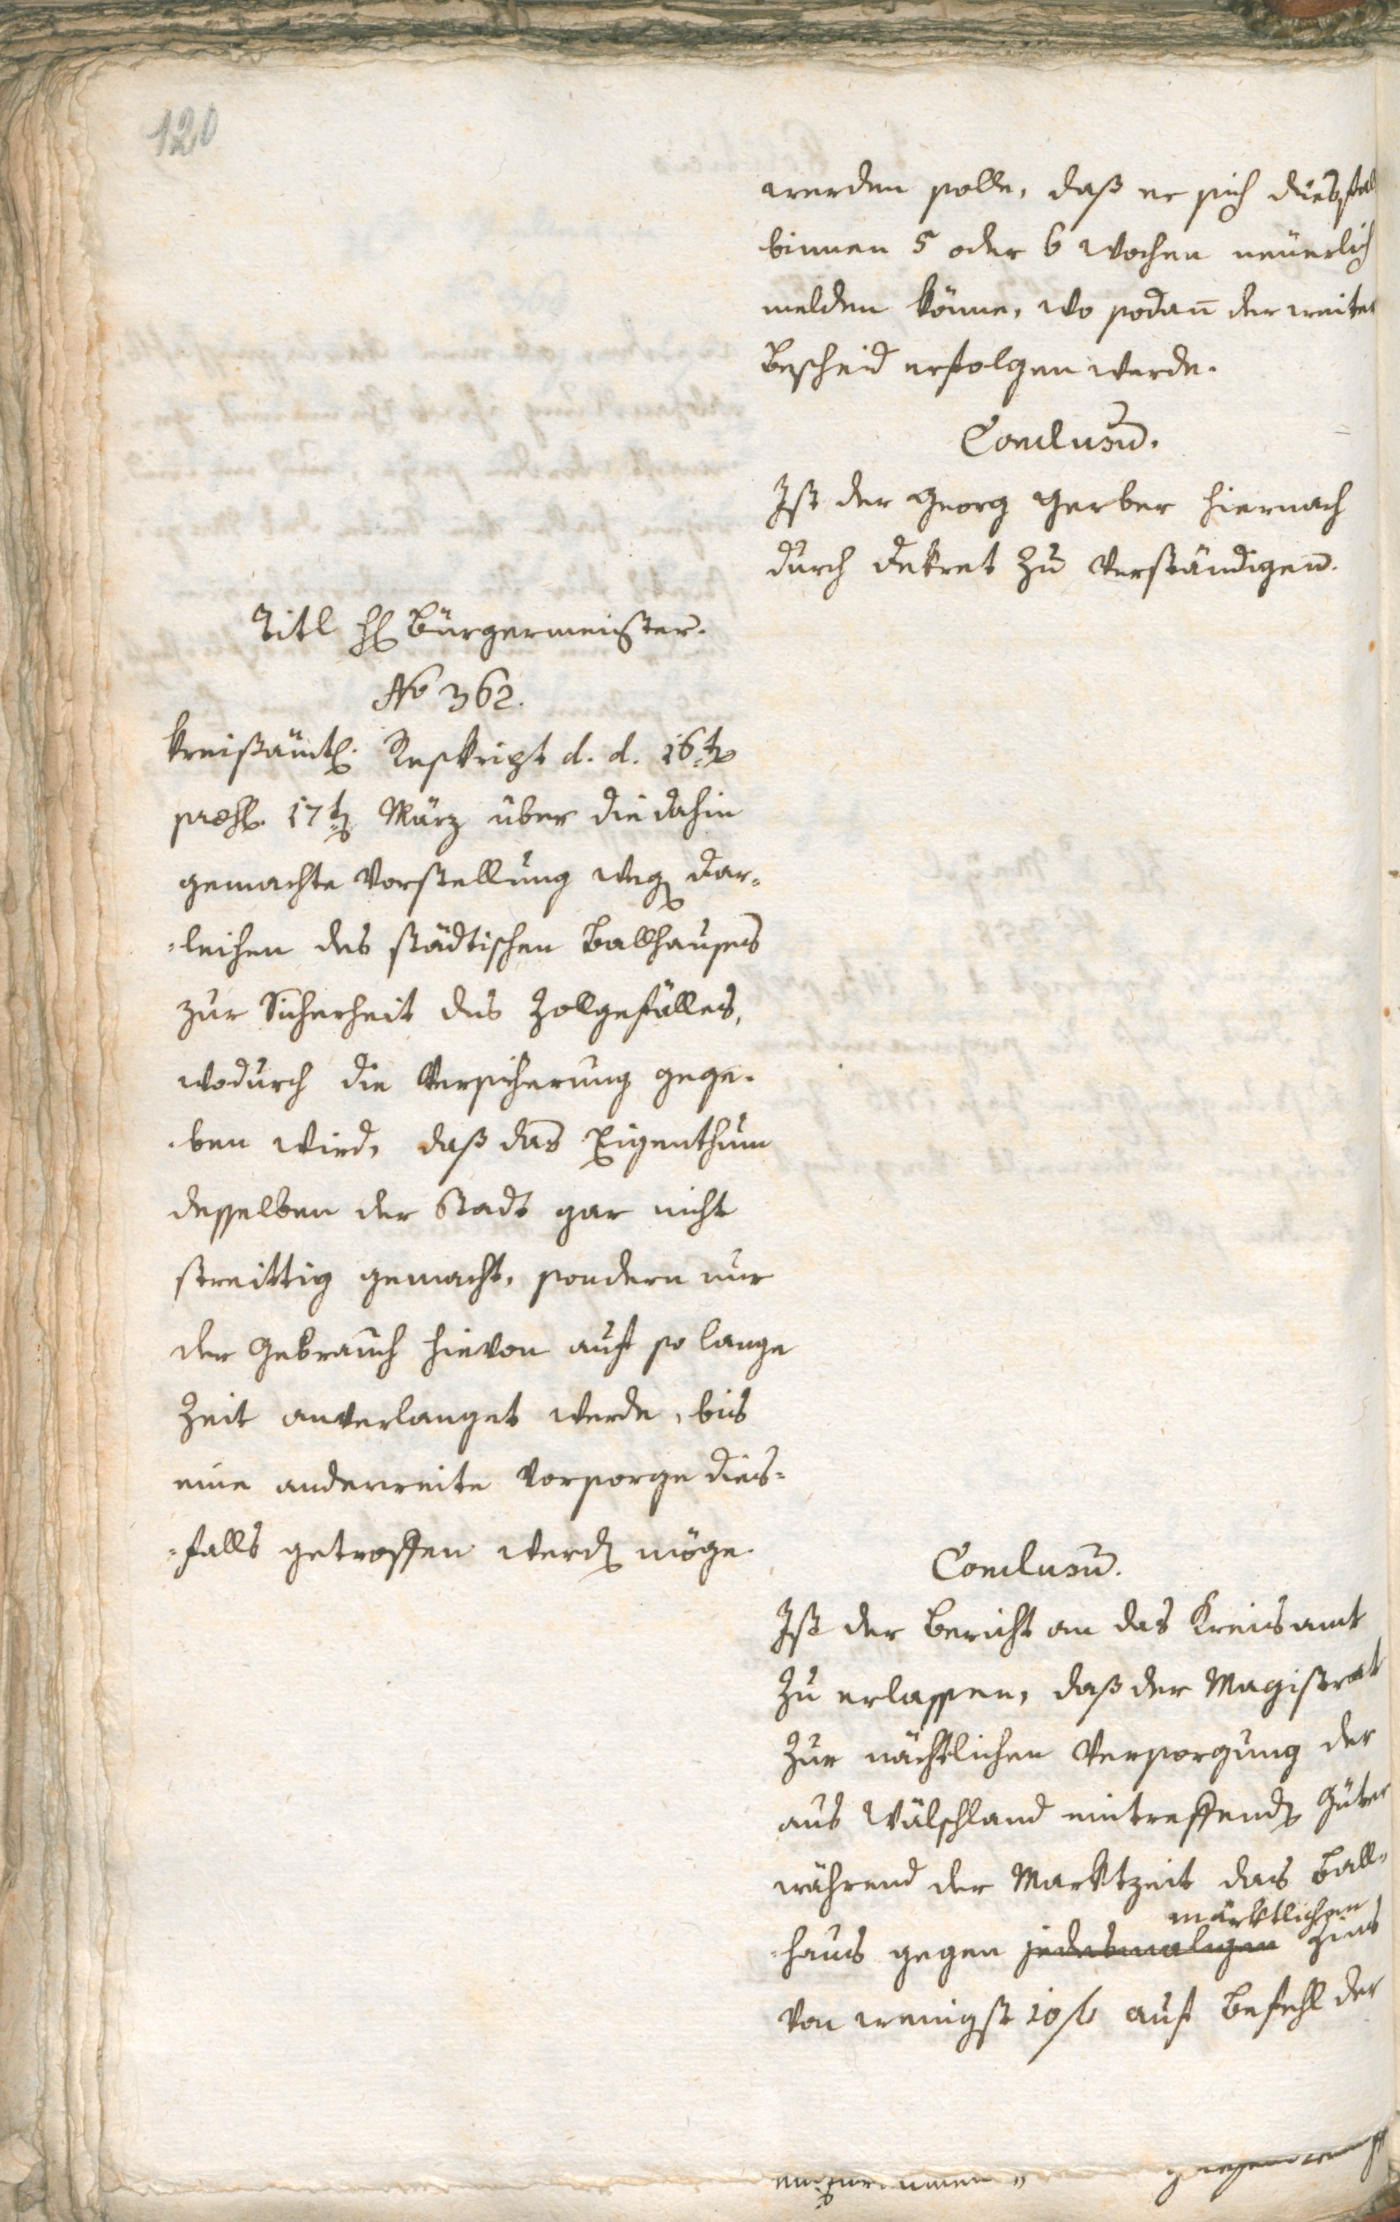 120
werden solle, daß er sich diesfal
binnen 5 oder 6 Wochen neuerlich
melden könne, wo sodan̄ der weiter
Bescheid erfolgen werde.
Conclusum̄.
Ist der Georg Gerber hiernach
durch Dekret zu verständigen.
Titl H Bürgermeister.
No 362.
Kreißämtl. Reskript d. d. 16t
præs. 17t März über die dahin
gemachte Vorstellung weg Dar-
-leihen des städtischen Ballhauses
zur Sicherheit des Zollgefälles,
wodurch die Versicherung gege-
-ben wird, daß das Eigenthum
desselben der Stadt gar nicht
streittig gemacht, sondern nur
der Gebrauch hievon auf so lange
Zeit anverlanget werde, bis
eine anderweite Vorsorge dies-
-falls getroffen werd möge.
Conclusum̄.
Ist der Bericht an das Kreisamt
zu erlassen, daß der Magistrat
zur nächtlichen Versorgung der
aus Wälschland eintreffend Güter
während der Marktzeit das Ball-
märktlichen
-haus gegen jedesmaligen Zins
von wenigst 10 f auf Befehl der